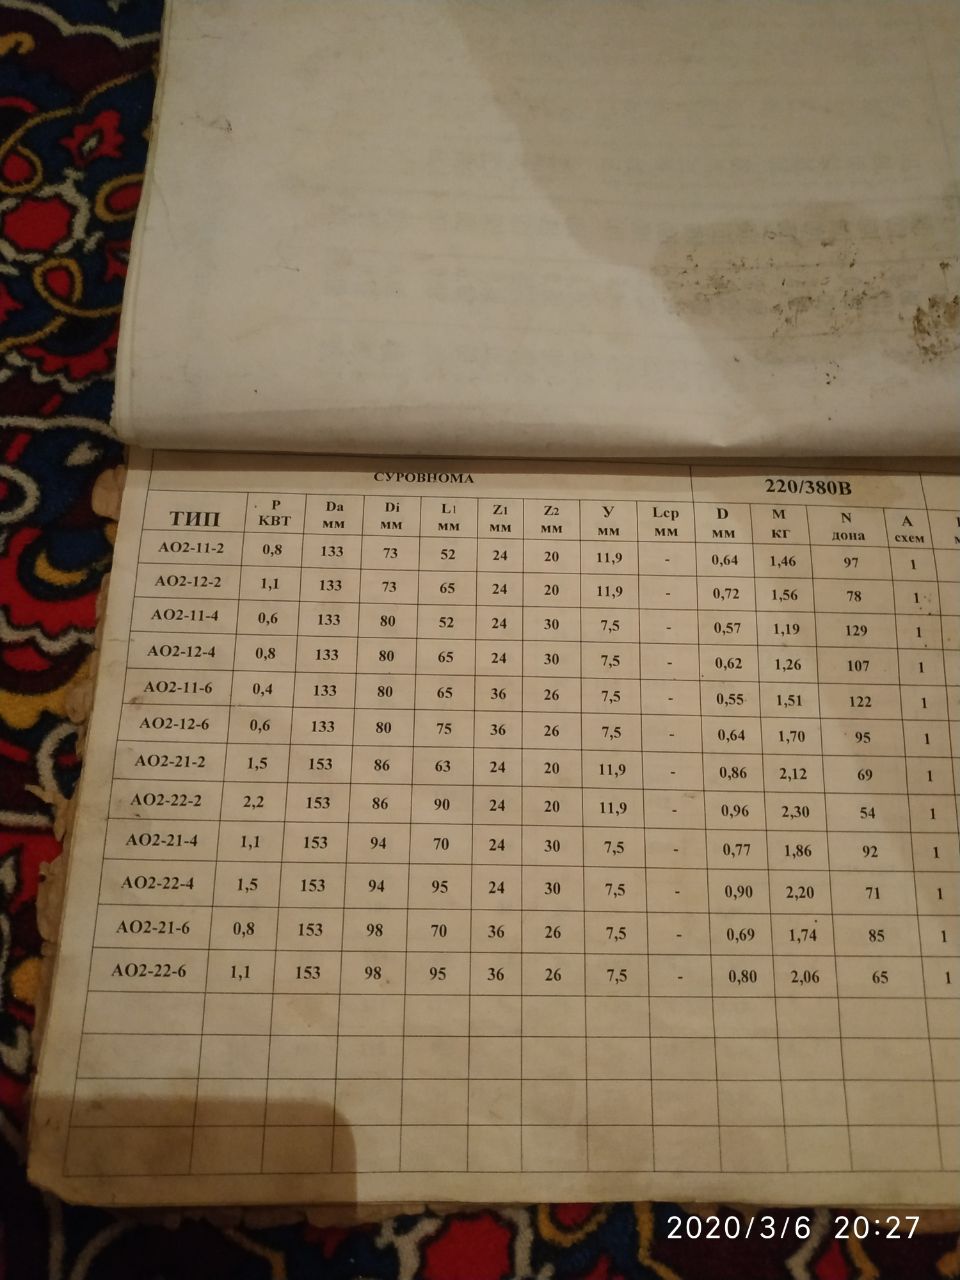 СУРОВНОМА 220/380В
ТИП Р КВТ Da мм Di мм L1 мм Z1 мм Z2 мм У мм Lср мм D мм М кг N дона А схем
АО2-11-2 0,8 133 73 52 24 20 11,9 - 0,64 1,46 97 1
АО2-12-2 1,1 133 73 65 24 20 11,9 - 0,72 1,56 78 1
АО2-11-4 0,6 133 80 52 24 30 7,5 - 0,57 1,19 129 1
АО2-12-4 0,8 133 80 65 24 30 7,5 - 0,62 1,26 107 1
АО2-11-6 0,4 133 80 65 36 26 7,5 - 0,55 1,51 122 1
АО2-12-6 0,6 133 80 75 36 26 7,5 - 0,64 1,70 95 1
АО2-21-2 1,5 153 86 63 24 20 11,9 - 0,86 2,12 69 1
АО2-22-2 2,2 153 86 90 24 20 11,9 - 0,96 2,30 54 1
АО2-21-4 1,1 153 94 70 24 30 7,5 - 0,77 1,86 92 1
АО2-22-4 1,5 153 94 95 24 30 7,5 - 0,90 2,20 71 1
АО2-21-6 0,8 153 98 70 36 26 7,5 - 0,69 1,74 85 1
АО2-22-6 1,1 153 98 95 36 26 7,5 - 0,80 2,06 65 1
2020/3/6 20:27